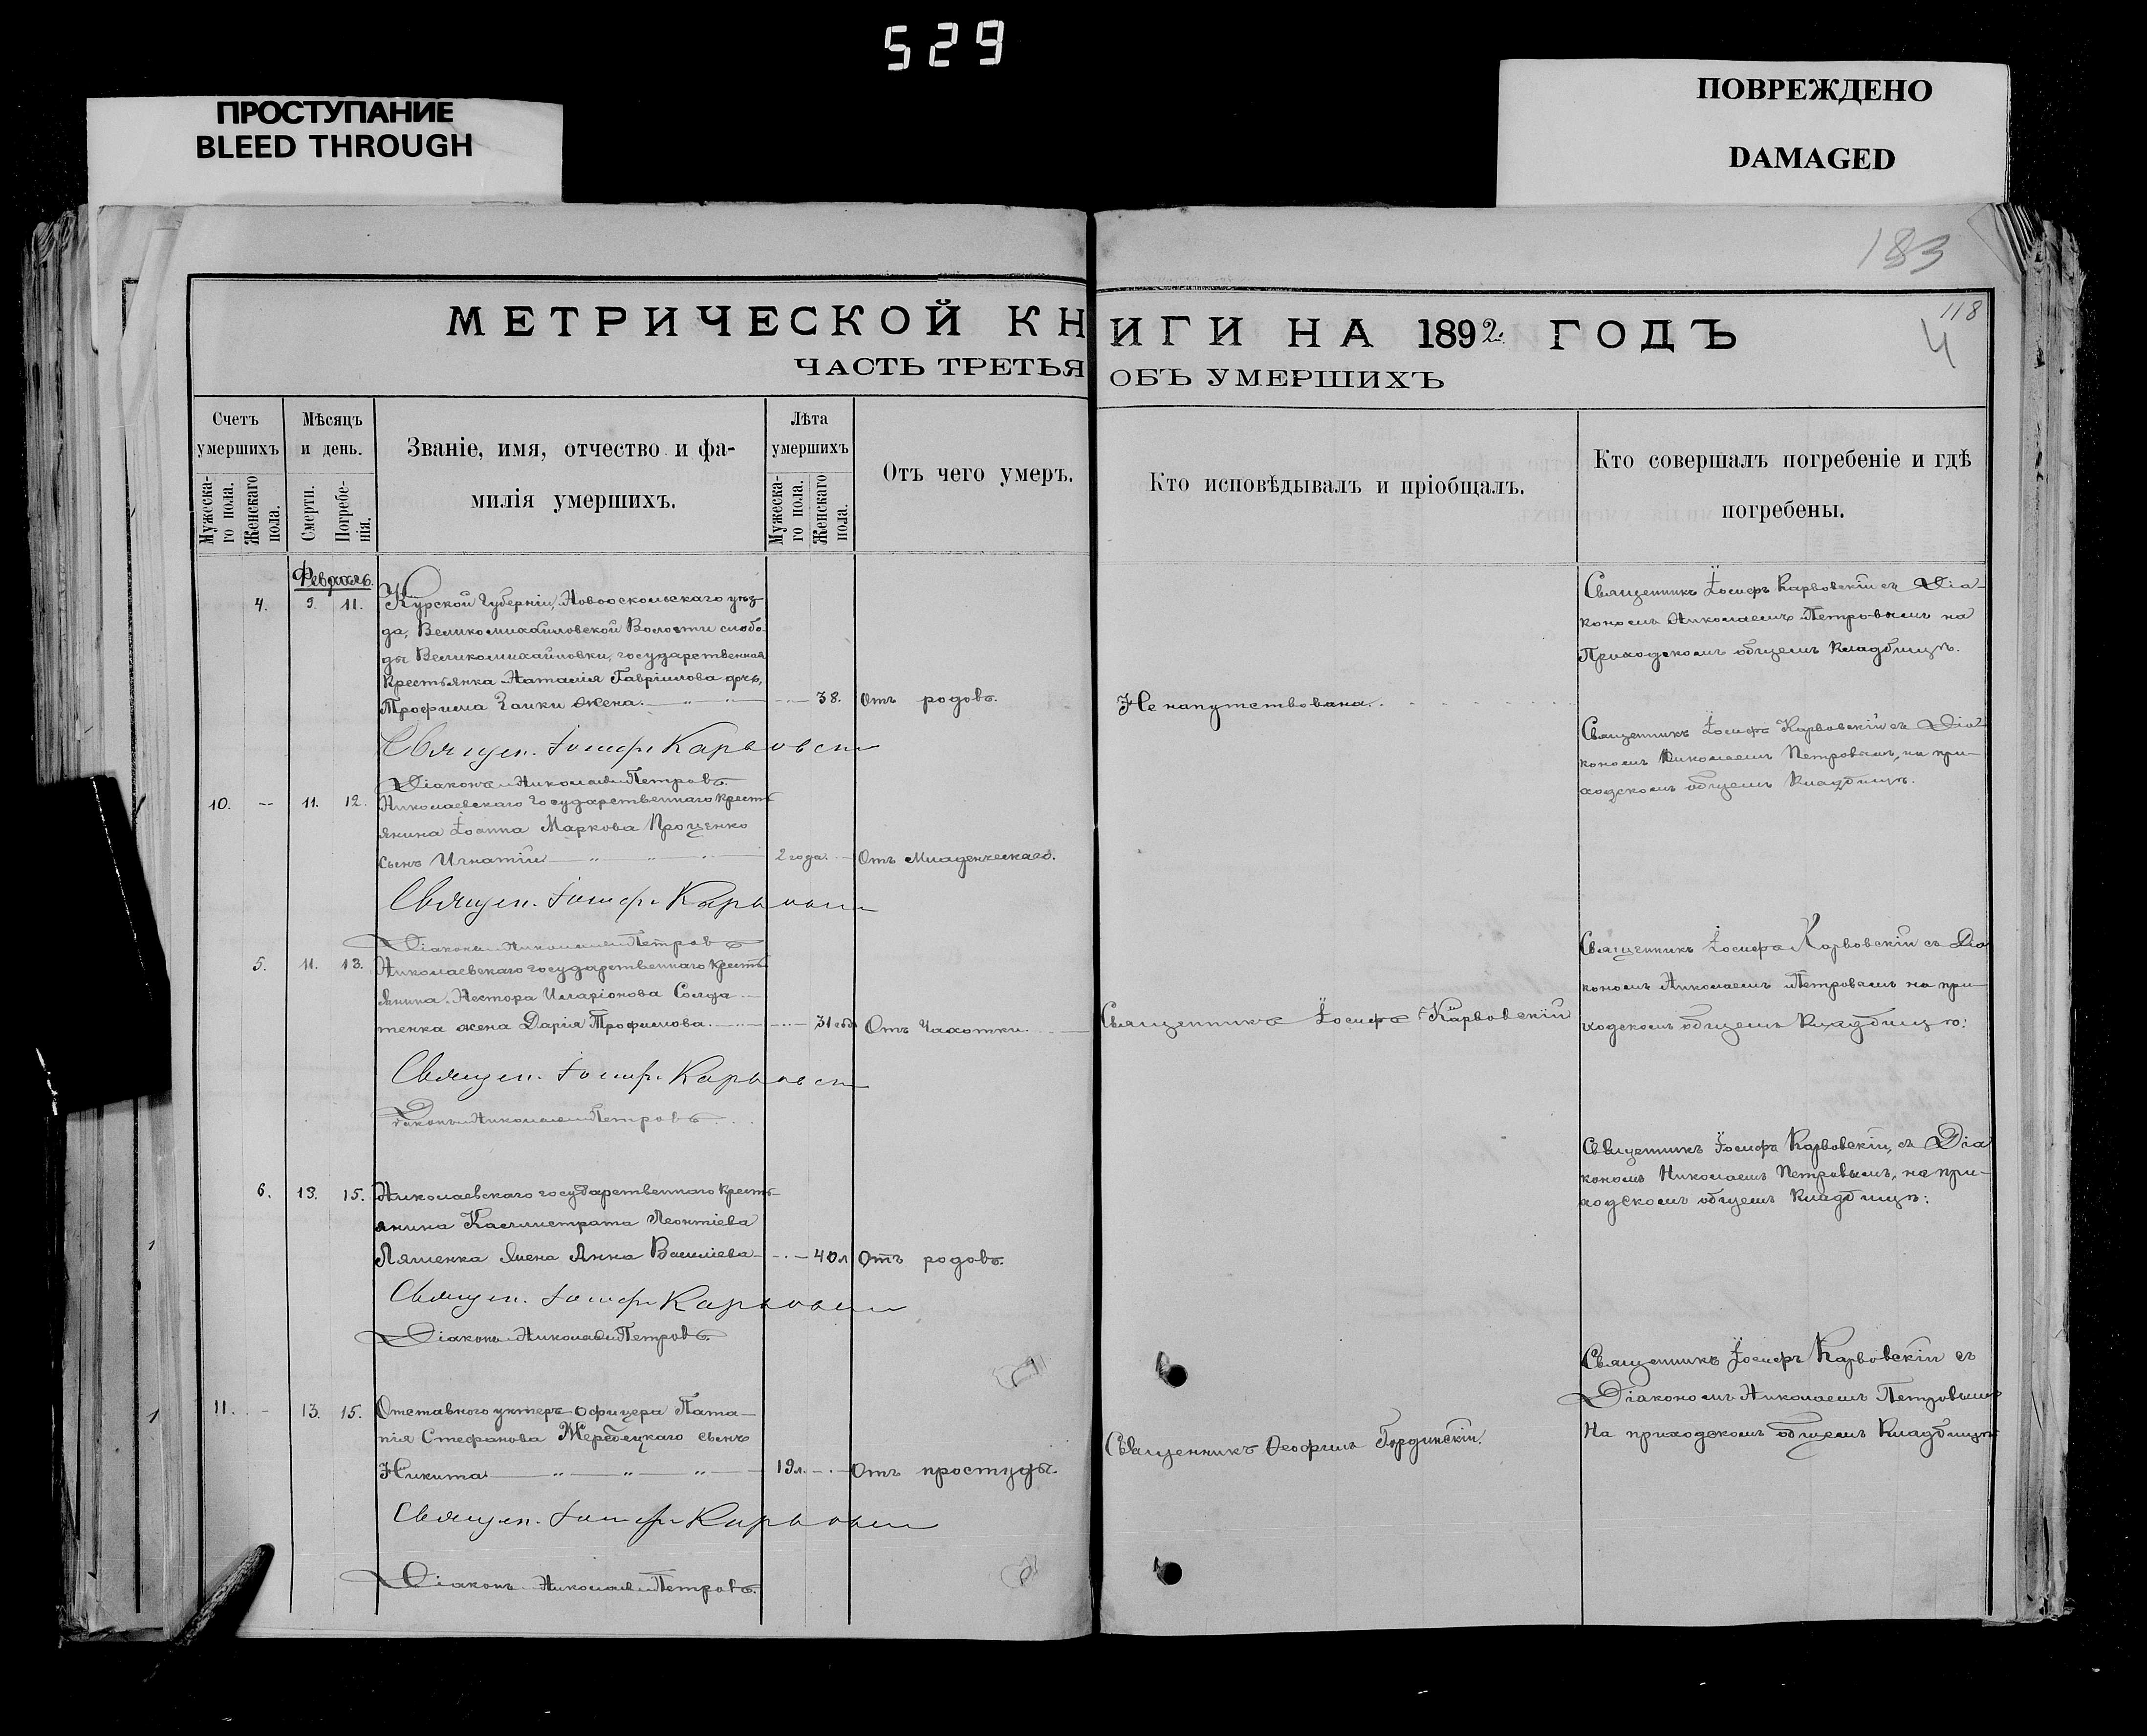 529
ПРОСТУПАНИЕ
BLEED THROUGH
ПОВРЕЖДЕНО
DAMAGED
183
118
4
МЕТРИЧЕСКОЙ КНИГИ НА 1892 ГОДЪ
ЧАСТЬ ТРЕТЬЯ ОБЪ УМЕРШИХЪ
Счетъ умершихъ
Мужеска-го пола.
Женскаго пола.
Мѣсяцъ и день.
Смерти.
Погребе-нія.
Званіе, имя, отчество и фа-
милія умершихъ.
Лѣта умершихъ
Мужеска-го пола.
Женскаго пола.
Отъ чего умеръ.
Кто исповѣдывалъ и пріобщалъ.
Кто совершалъ погребеніе и гдѣ
погребены.
Февраль.
4. 9. 11. Курской Губерніи, Новооскольскаго уѣз-
да, Великомихайловской Волости слобо-
ды Великомихайловки, государственная
крестьянка Наталія Гавріилова
Трофима жена. 38. Отъ родовъ. Не напутствована.
Священникъ Іосифъ Карвовскій съ Діа-
кономъ Николаемъ Петровымъ на
Приходскомъ общемъ кладбищѣ.
Священ. Іосифъ Карвовскій
Діаконъ Николай Петровъ.
10. -- 11. 12. Николаевскаго государственнаго кресть
янина Іоанна Маркова Проценко
сынъ Игнатій 2 года. Отъ младенческаго.
Священникъ Іосифъ Карвовскій съ Діа
кономъ Николаемъ Петровымъ, на при-
ходскомъ общемъ кладбищѣ.
Священ. Іосифъ Карвовскій
Діаконъ Николай Петровъ
5. 11. 13. Николаевскаго государственнаго кресть
янина Нестора Иларіонова Солда
тенка жена Дарія Трофимова. 31 Отъ чахотки. Священникъ Іосифъ Карвовскій
Священникъ Іосифъ Карвовскій съ Діа
кономъ Николаемъ Петровымъ на при
ходскомъ общемъ кладбищѣ:
Священ. Іосифъ Карвовскій
Діаконъ Николай Петровъ.
6. 13. 15. Николаевскаго государственнаго кресть-
янина Каллистрата Леонтіева
Ляшенка жена Анна Василіева 40 л Отъ родовъ.
Священникъ Іосифъ Карвовскій, съ Діа
кономъ Николаемъ Петровымъ, на при-
ходскомъ общемъ кладбищѣ:
Священ. Іосифъ Карвовскій
Діаконъ Николай Петровъ.
11. - 13. 15. Отставного унтеръ-офицера Пата-
пія Стефанова Жеребецкаго сынъ
Никита 19 л. Отъ простуды. Священникъ Ѳеофилъ Гординскій.
Священникъ Іосифъ Карвовскій съ
Діакономъ Николаемъ Петровымъ
На приходскомъ общемъ кладбищѣ
Священ. Іосифъ Карвовскій
Діаконъ Николай Петровъ.
1
1